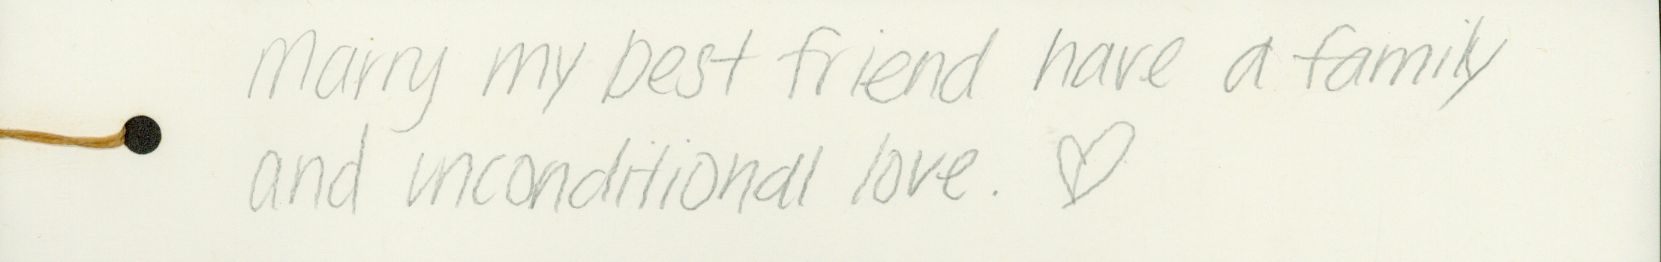 Marry my best friend have a family
and unconditional love. ♡